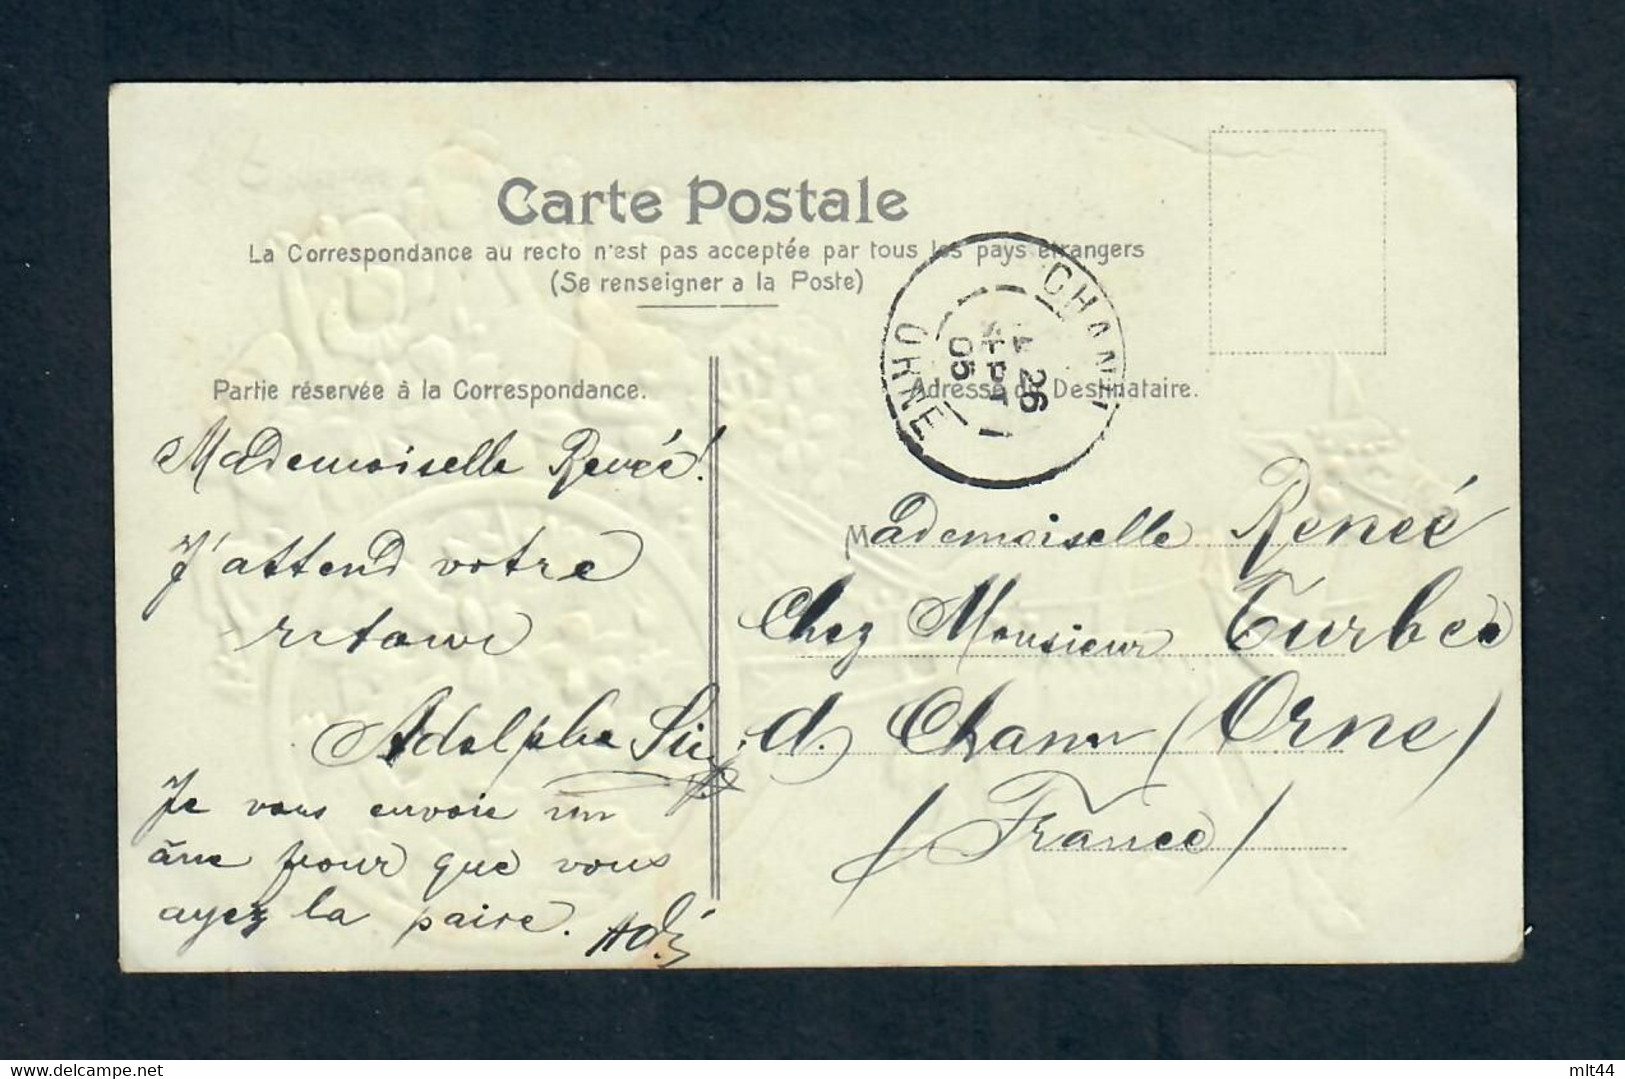 Carte Postale
La Correspondance au recto n'est pas acceptée par tous les pays étrangers
(Se renseigner a la Poste)
Partie réservée à la Correspondance.
Adresse du Destinataire.
ORNE
26
SEPT
05
Mademoiselle Renéé!
J'attend votre
retour
Adolphe
Je vous envoie un
âne pour que vous
ayez la paire.
Mademoiselle Reneé
Chez Monsieur Turbeé
d. Chanu (Orne)
(France)
mlt44